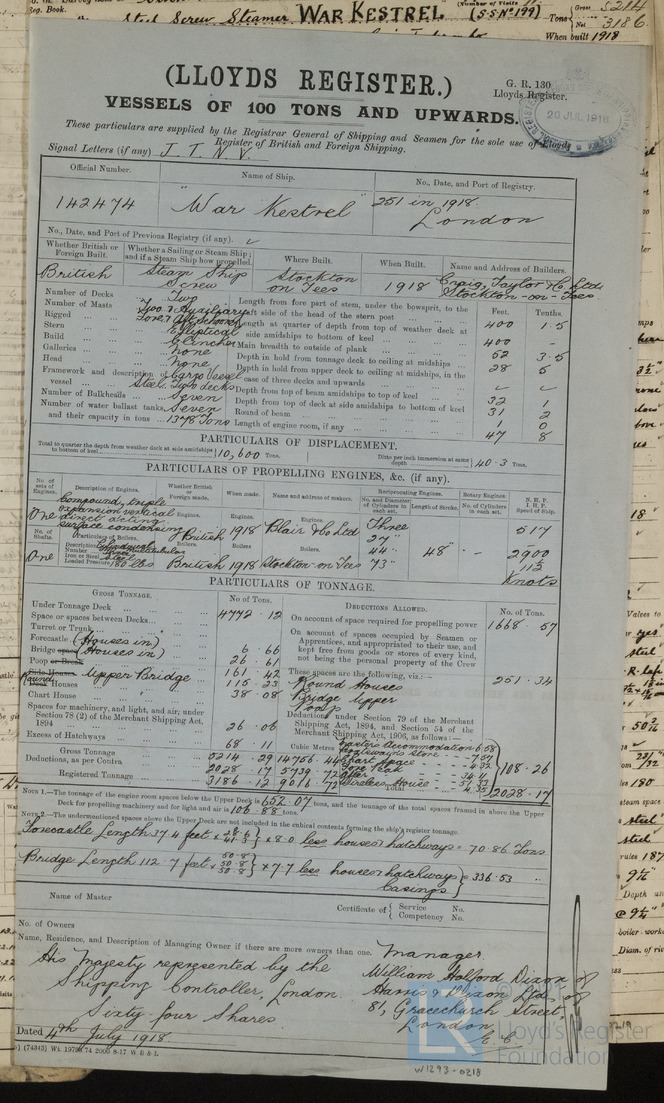 Steel Screw Steamer WAR KESTREL (SS No 199)
Tons Gross 5214
Net 3186
When built 1918
(LLOYDS REGISTER.)
G. R. 130
Lloyds Register.
VESSELS OF 100 TONS AND UPWARDS.
20 JUL 1918
These particulars are supplied by the Registrar General of Shipping and Seamen for the sole use of Lloyds
Register of British and Foreign Shipping.
Signal Letters (if any) J. T. N. V.
Official Number. Name of Ship. No., Date, and Port of Registry.
142474 "War Kestrel" 251 in 1918
London
No., Date, and Port of Previous Registry (if any).
Whether British or Foreign Built. Whether a Sailing or Steam Ship; and if a Steam Ship how propelled. Where Built. When Built. Name and Address of Builders.
British Steam Ship Screw Stockton on Tees 1918 Craig, Taylor & Co Ltd Stockton-on-Tees
Number of Decks Two
Number of Masts Two & Auxiliary
Rigged Fore & Aft Schooner
Stern Elliptical
Build Clincher
Galleries None
Head None
Framework and description of vessel Cargo Vessel Steel. Two decks
Number of Bulkheads Seven
Number of water ballast tanks, Seven
and their capacity in tons 1378 Tons
Feet. Tenths.
Length from fore part of stem, under the bowsprit, to the aft side of the head of the stern post 400 1.5
Length at quarter of depth from top of weather deck at side amidships to bottom of keel 400 -
Main breadth to outside of plank 52 3.5
Depth in hold from tonnage deck to ceiling at midships 28 5
Depth in hold from upper deck to ceiling at midships, in the case of three decks and upwards
Depth from top of beam amidships to top of keel 32 1
Depth from top of deck at side amidships to bottom of keel 31 2
Round of beam 1 0
Length of engine room, if any 47 8
PARTICULARS OF DISPLACEMENT.
Total to quarter the depth from weather deck at side amidships to bottom of keel 10,600 Tons. Ditto per inch immersion at same depth 40.3 Tons.
PARTICULARS OF PROPELLING ENGINES, &c. (if any).
No. of sets of Engines. Description of Engines. Whether British or Foreign made. When made. Name and address of makers. Reciprocating Engines. Rotary Engines. N.H.P. I.H.P. Speed of Ship.
No. and Diameter of Cylinders in each set. Length of Stroke. No. of Cylinders in each set.
One Compound, triple expansion vertical direct acting surface condensing British 1918 Blair & Co Ltd Three 27" 44" 73" 48" - 517
No. of Shafts. Particulars of Boilers. Boilers Boilers Boilers. 2900
Iron or Steel Steel
Loaded Pressure 180 lbs
One British 1918 Stockton on Tees 11½ Knots
PARTICULARS OF TONNAGE.
GROSS TONNAGE. No. of Tons.
Under Tonnage Deck 4772 .12
Space or spaces between Decks
Turret or Trunk
Forecastle (Houses in) 6 .66
Bridge space (Houses in) 26 .61
Poop or Break Upper Bridge 161 .42
Side Houses
Round Houses 115 .23
Chart House 38 .08
Spaces for machinery, and light, and air, under Section 78 (2) of the Merchant Shipping Act, 1894 26 .06
Excess of Hatchways 68 .11
Cubic Metres
Gross Tonnage 5214 .29 14756.44
Deductions, as per Contra 2028 .17 5739.72
Registered Tonnage 3186 .12 9016.72
DEDUCTIONS ALLOWED. No. of Tons.
On account of space required for propelling power 1668 .57
On account of spaces occupied by Seamen or Apprentices, and appropriated to their use, and kept free from goods or stores of every kind, not being the personal property of the Crew 251.34
These spaces are the following, viz.:—
Round Houses
Bridge Upper
Poop
Deductions under Section 79 of the Merchant Shipping Act, 1894, and Section 54 of the Merchant Shipping Act, 1906, as follows:—
Master's Accommodation 6.58
Boatswain's Store 7.57
Chart Space 4.32
Fore Peak
Wireless House 4.35
108.26
Total 2028.17
NOTE 1.—The tonnage of the engine room spaces below the Upper Deck is 652.07 tons, and the tonnage of the total spaces framed in above the Upper
Deck for propelling machinery and for light and air is 106.88 tons.
NOTE 2.—The undermentioned spaces above the Upper Deck are not included in the cubical contents forming the ship's register tonnage.
Forecastle Length 37.4 feet × 8.0 less houses & hatchways = 70.86 Tons
Bridge Length 112.7 feet × 50.8 × 7.7 less houses hatchways & Casings = 336.53 "
Name of Master
Certificate of Service No.
Competency No.
No. of Owners
Name, Residence, and Description of Managing Owner if there are more owners than one.
His Majesty represented by the
Shipping Controller, London.
Sixty four Shares
Manager
William Holford Dixon of
Harris & Dixon Ltd. of
81, Gracechurch Street,
London
E.C.
Dated 4th July 1918
(74343) Wt. 19793/74 2000 8-17 W B & L
© Lloyd's Register Foundation
W1293-0218